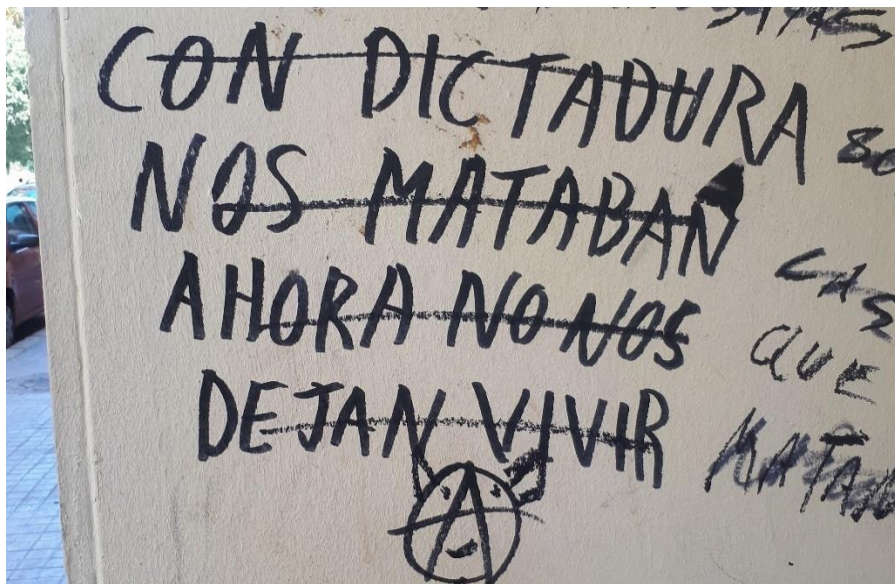 CON DICTADURA
NOS MATABAN
AHORA NO NOS
DEJAN VIVIR
QUE
MATAN